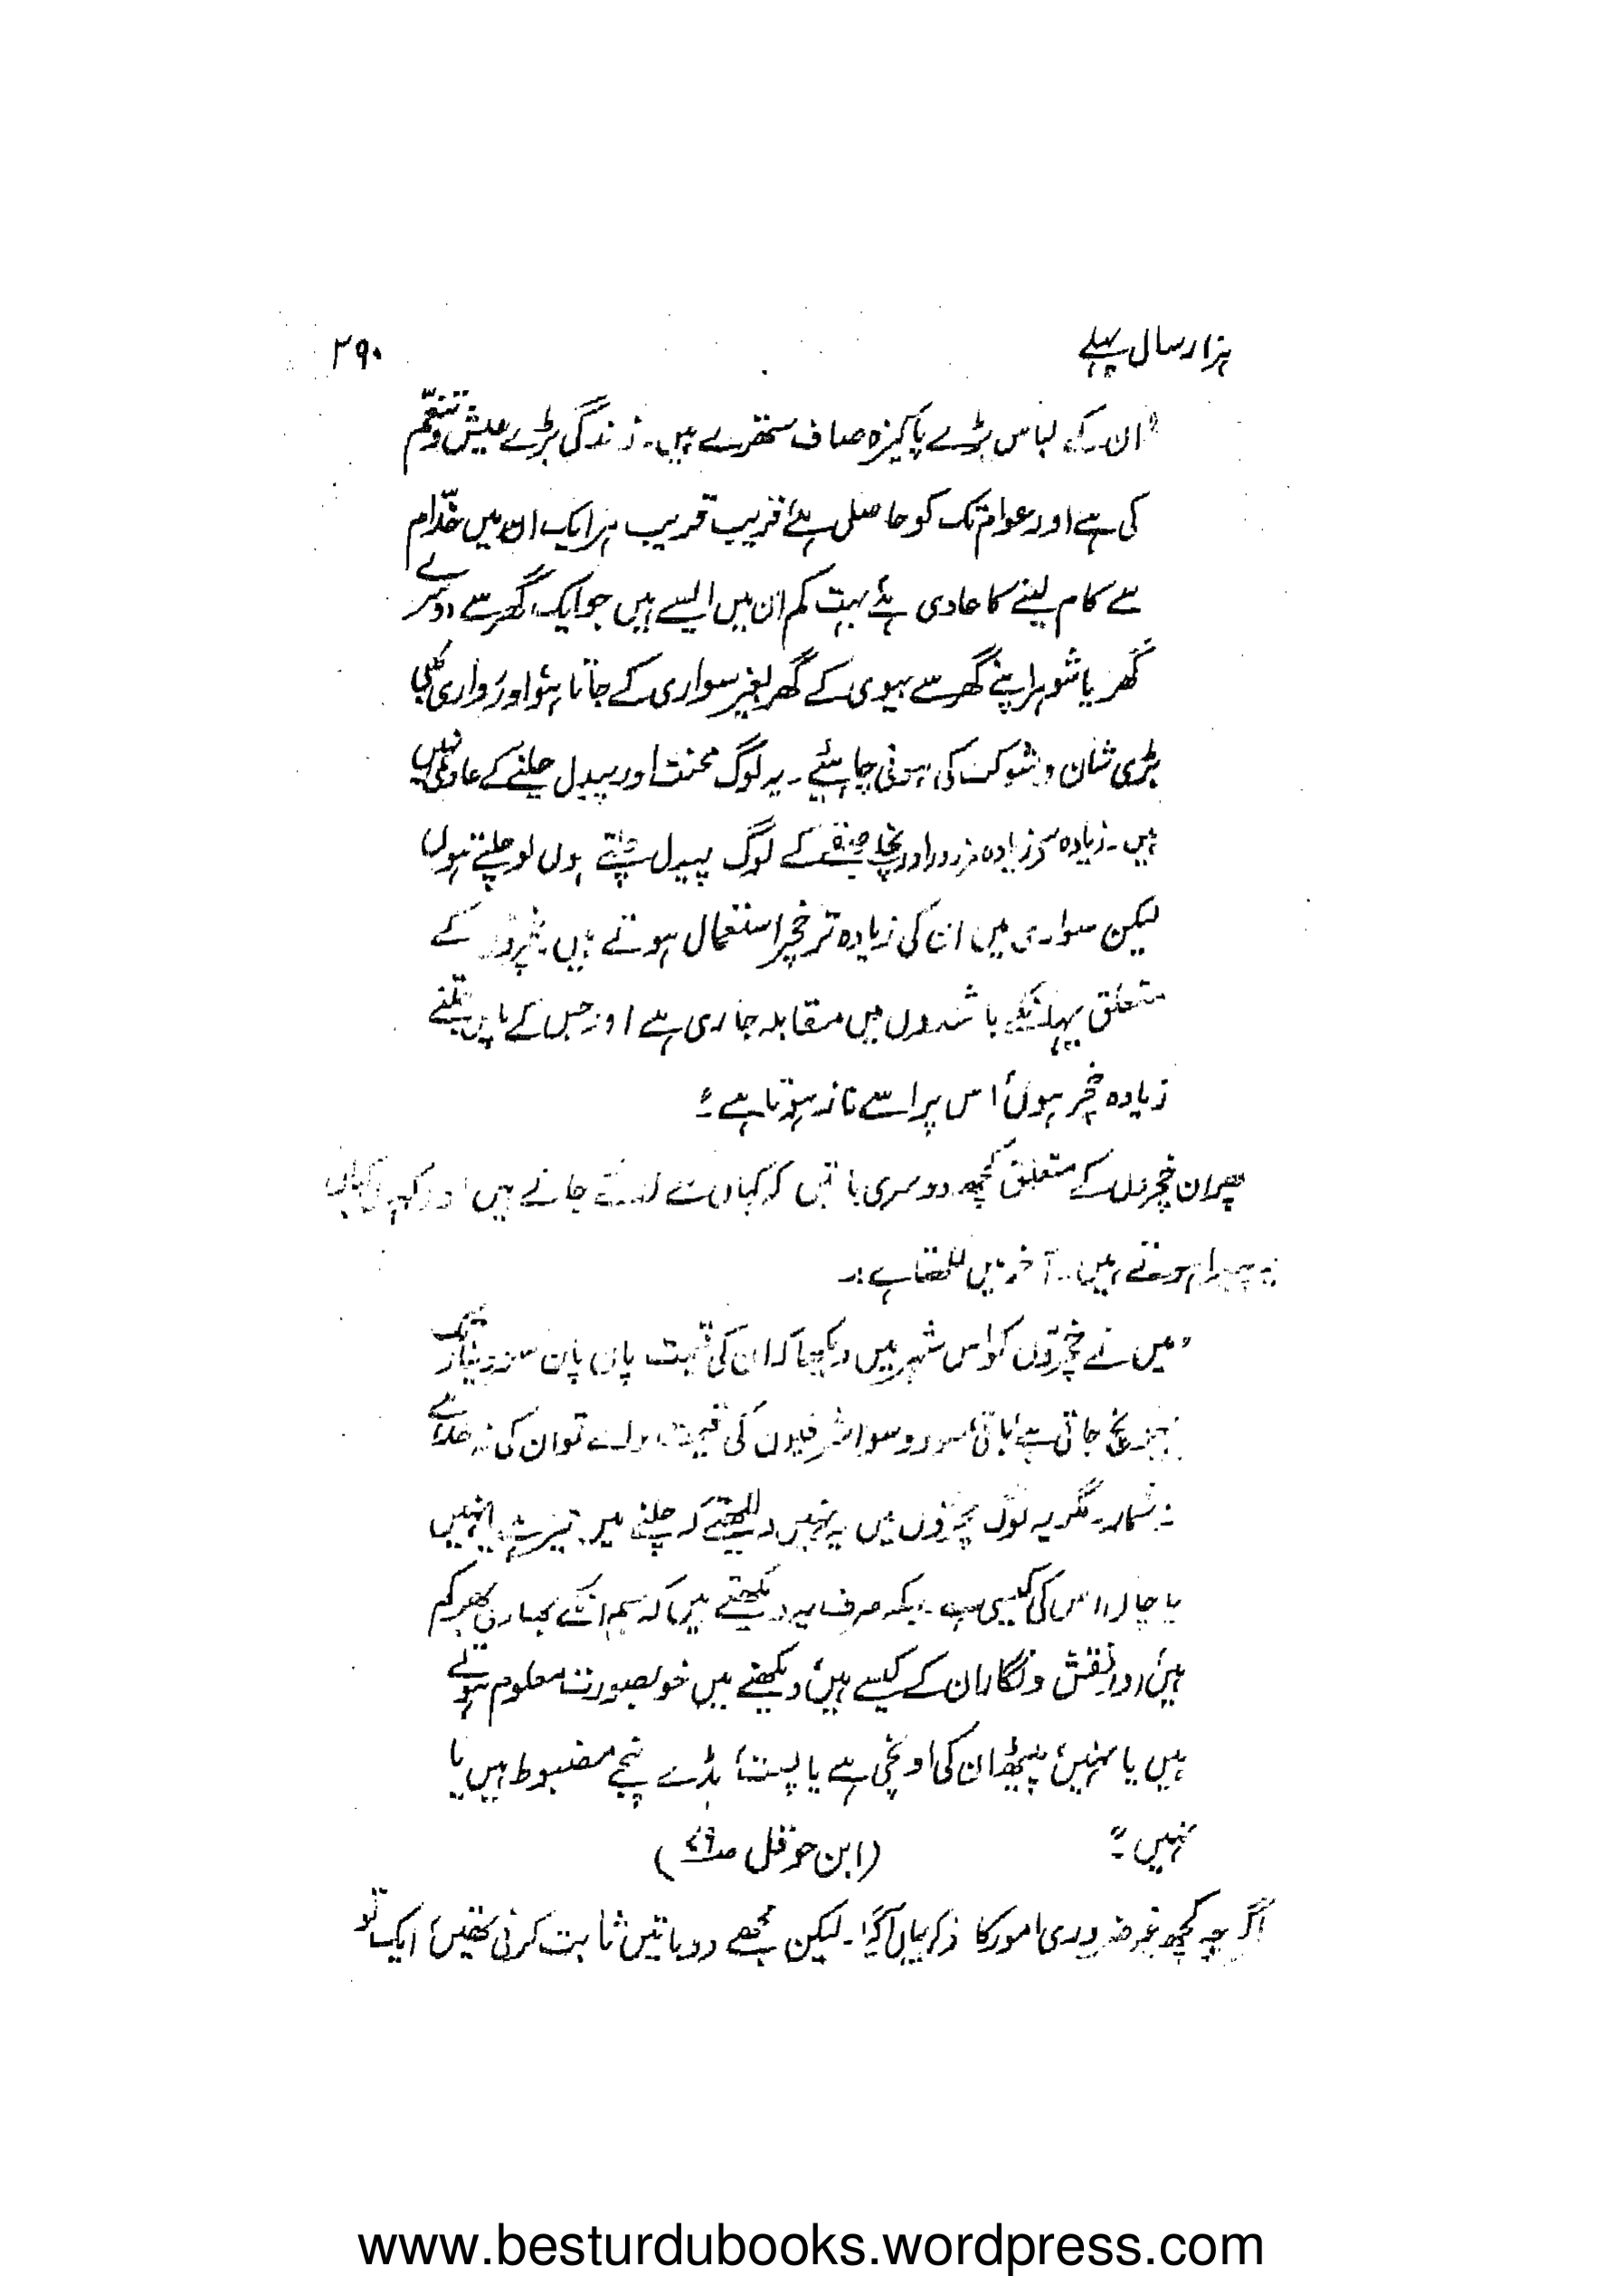 ہزار سال پہلے ۲۹۰
"ان کے لباس بڑے پاکیزہ صاف ستھرے ہیں۔ زندگی بڑے عیش و تنعّم
کی ہے اور عوام تک کو حاصل ہے، قریب قریب ہر ایک ان میں خدّام
سے کام لینے کا عادی ہے، بہت کم ان میں ایسے ہیں جو ایک گھر سے دوسرے
گھر یا شوہر اپنے گھر سے بیوی کے گھر بغیر سواری کے جاتا ہو، اور سواری بھی
بڑی شان و شوکت کی ہونی چاہئے۔ یہ لوگ محنت اور پیدل چلنے کے عادی نہیں
ہیں۔ زیادہ سے زیادہ مزدور اور نچلے طبقے کے لوگ پیدل چلتے ہوں تو چلتے ہوں
لیکن سواری میں ان کی زیادہ تر خچر استعمال ہوتے ہیں، خچروں کے
متعلق یہاں کے باشندوں میں مقابلہ جاری ہے اور جس کے پاس جتنے
زیادہ خچر ہوں، اس پر اسے ناز ہوتا ہے"
پھر ان خچروں کے متعلق کچھ دوسری باتیں کہ کہاں سے لائے جاتے ہیں اور کہاں کہاں
پیدا ہوتے ہیں۔ آخر میں لکھتا ہے:۔
"میں نے خچروں کو اس شہر میں دیکھا کہ ان کی قیمت پان پان سو دینار تک
پہنچ جاتی ہے، باقی سو دو سو اشرفیوں کی قیمت والے تو ان کی نہ حد ہے
نہ شمار۔ مگر یہ لوگ خچروں میں یہ نہیں دیکھتے کہ چلنے میں تیز ہے یا نہیں
یا چال اس کی کیسی ہے۔ بلکہ صرف یہ دیکھتے ہیں کہ جسم ان کے بھاری بھرکم
ہیں، اور نقش و نگار ان کے کیسے ہیں، دیکھنے میں خوبصورت معلوم ہوتے
ہیں یا نہیں، پیٹھ ان کی اونچی ہے یا پست، بڑے پنجے مضبوط ہیں یا
نہیں"۔ (ابن حوقل ص)
اگرچہ کچھ غیر ضروری امور کا ذکر یہاں آگیا۔ لیکن مجھے دو باتیں ثابت کرنی تھیں، ایک تو
www.besturdubooks.wordpress.com